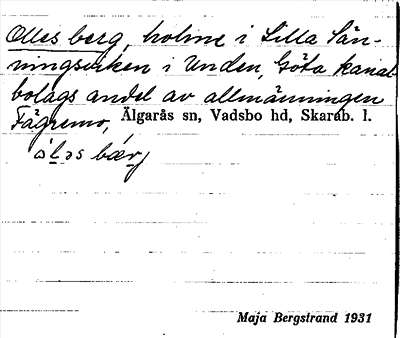 Olles berg, holme i Lilla Sän-
ningsviken i Unden, Göta kanal-
bolags andel av allmänningen
Fägremo, Älgarås sn, Vadsbo hd, Skarab. l.
Maja Bergstrand 1931